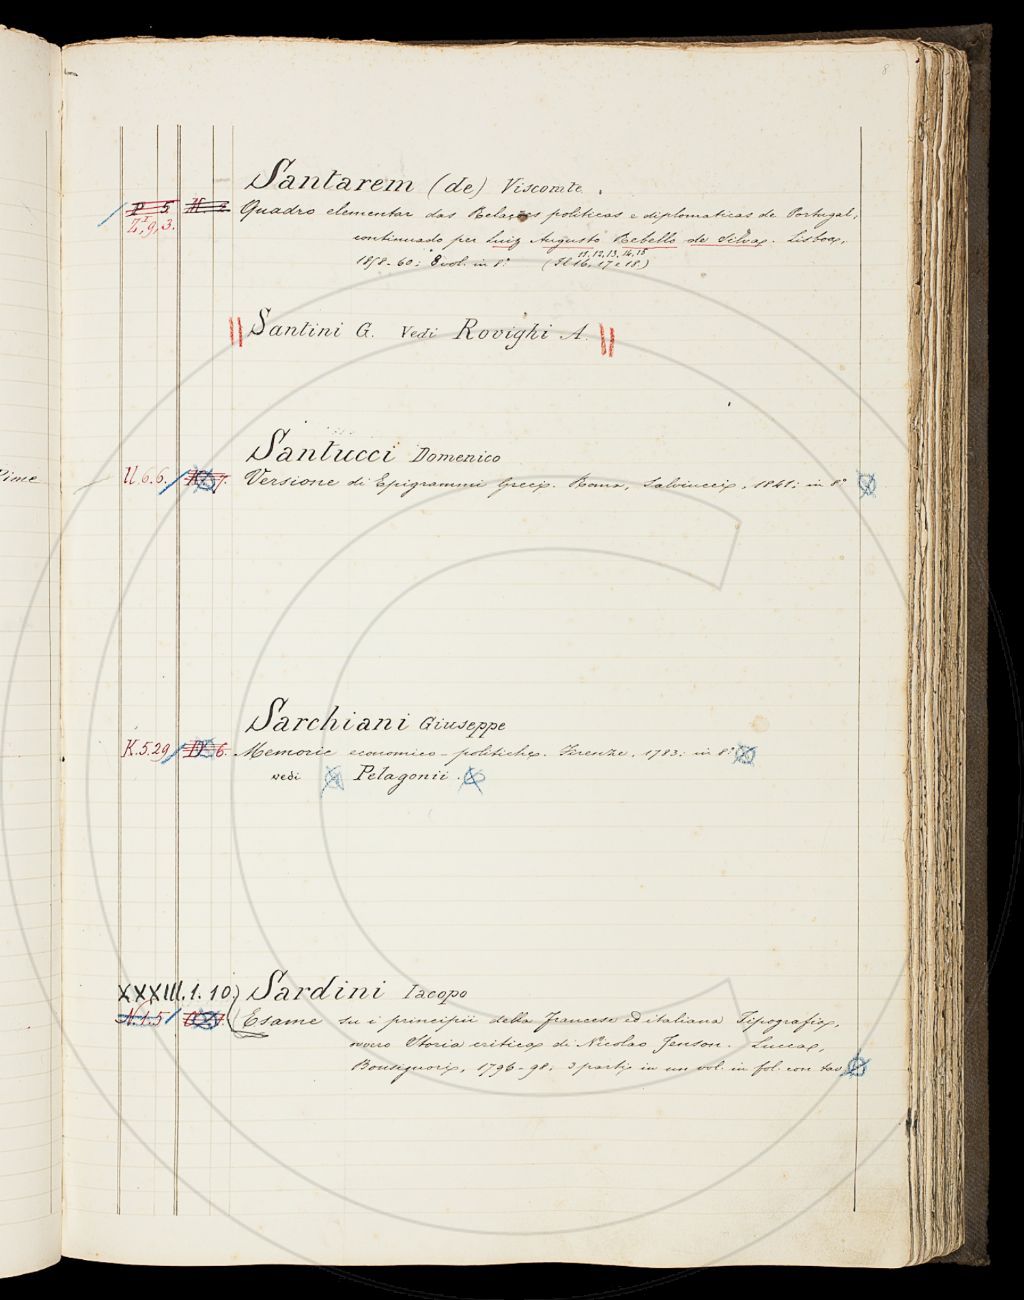 8
Santarem (de) Visconte.
P 5 H. 2. Quadro elementar das Relações politicas e diplomaticas de Portugal,
Z¹, 9, 3. continuado per Luiz Augusto Rebello da Silva. Lisboa,
11, 12, 13, 14, 15
1858-60; 8 vol. in 8.° (Il 16, 17 e 18)
Santini G. Vedi Rovighi A.
Santucci Domenico
U. 6. 6. Versione di Epigrammi Greci. Roma, Salviucci, 1841; in 8°
Sarchiani Giuseppe
K. 5. 29 D. 6. Memorie economico-politiche. Firenze, 1783; in 8°
vedi Pelagonii.
XXXIII. 1. 10.) Sardini Iacopo
N. 1. 5 Esame su i principii della francese ed italiana Tipografia,
ovvero Storia critica di Nicolao Jenson. Lucca,
Bonsignori, 1796-98; 3 parti in un vol. in fol. con tav.